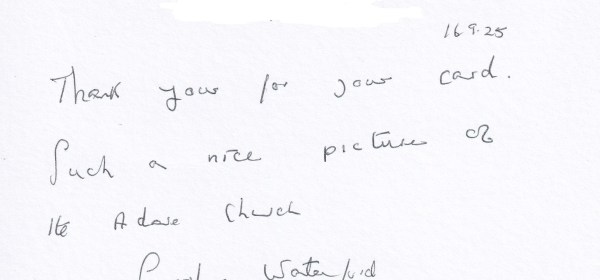 16 9.25
Thank you for your card.
Such a nice picture of
the Adare Church
Waterford